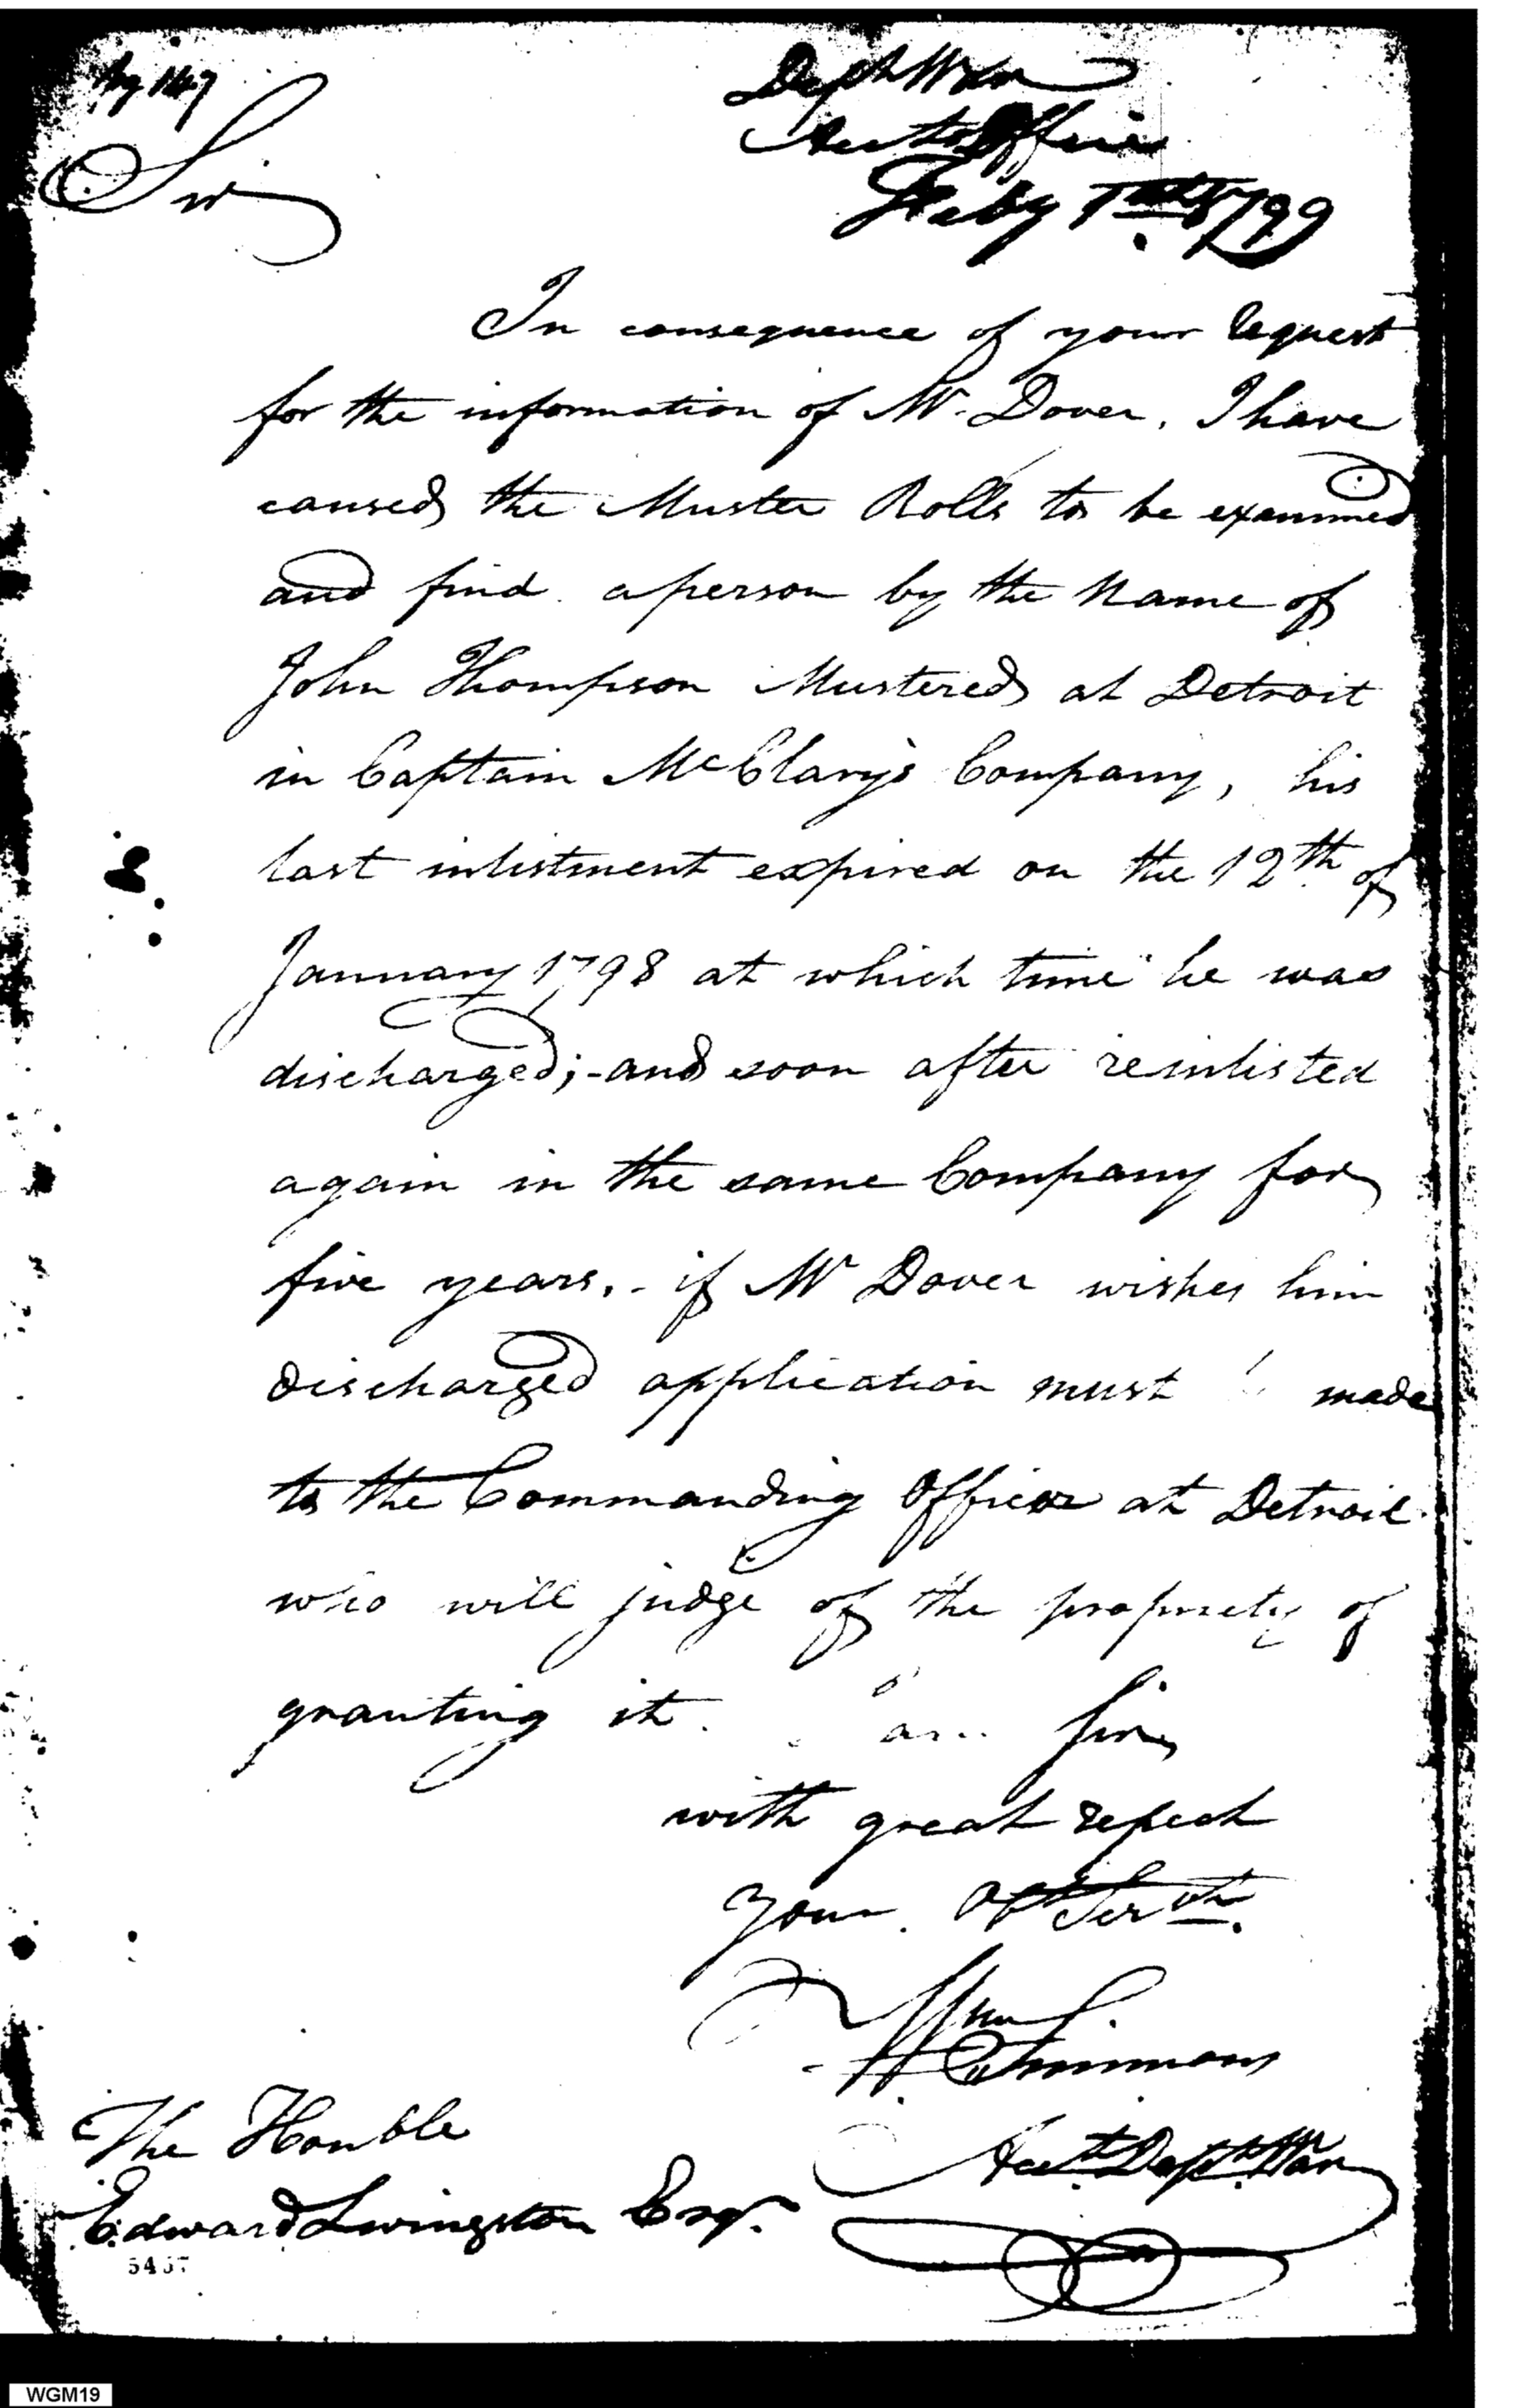 Sir
Dept War
Acct's Office
Feby 1799
In consequence of your request
for the information of Mr. Dover, I have
caused the Muster Rolls to be examined
and find a person by the Name of
John Thompson Mustered at Detroit
in Captain McClary's Company, his
last inlistment expired on the 12th of
January 1798 at which time he was
discharged; - and soon after reinlisted
again in the same Company for
five years. - if Mr Dover wishes him
discharged application must made
to the Commanding Officer at Detroit
who will judge of the propriety of
granting it. am Sir,
with great respect
your Obt Servt.
Wm Simmons
Acct Dept War
The Honble
Edward Livingston Esqr.
WGM19